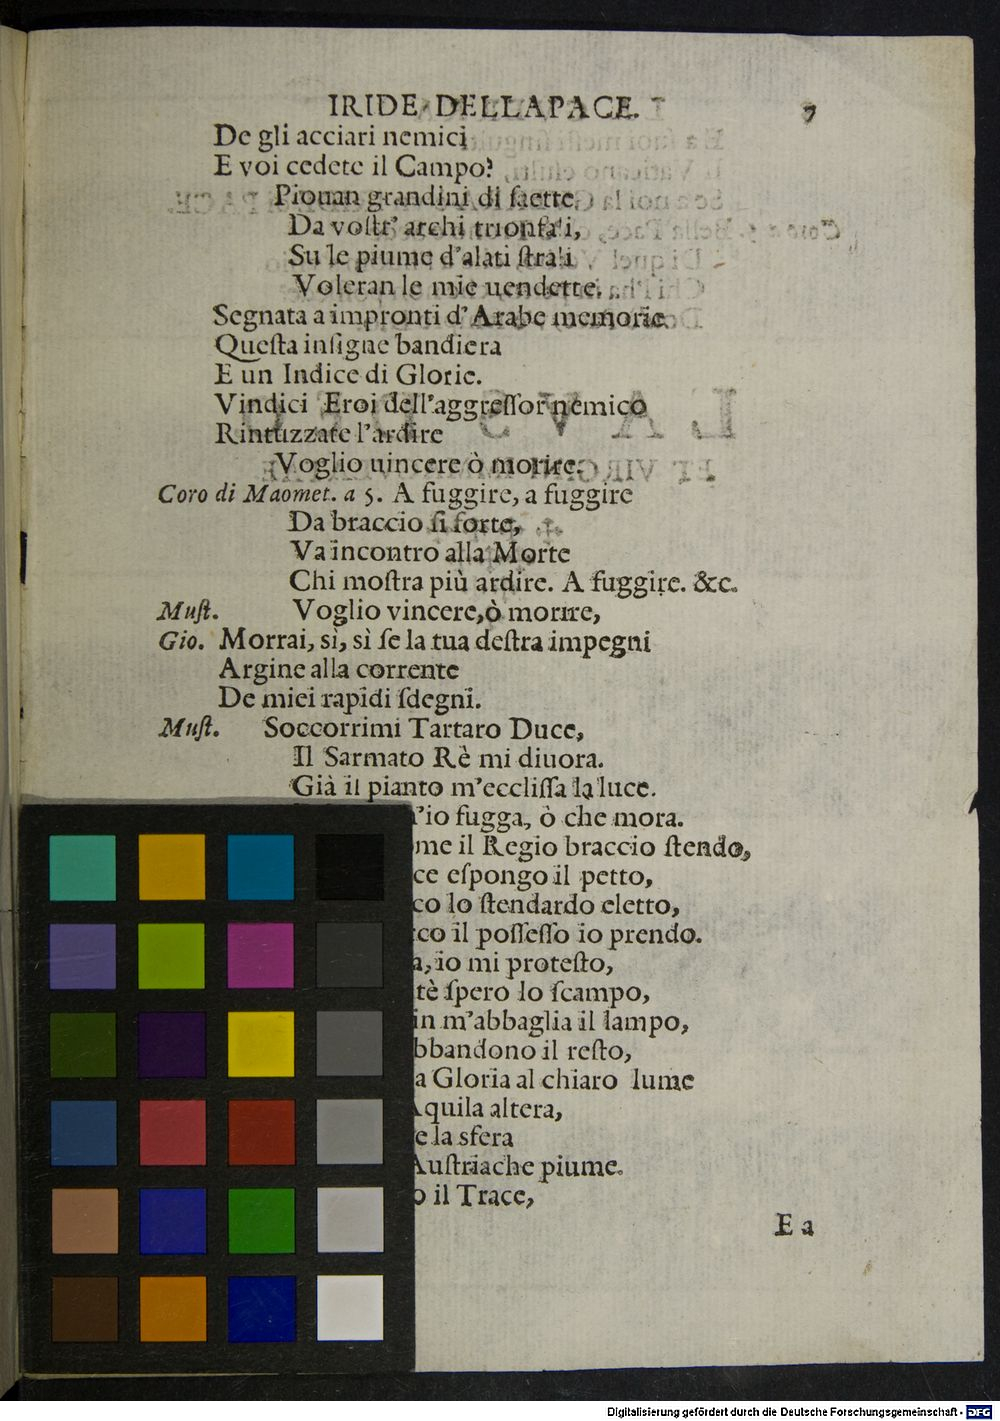 IRIDE DELLA PACE. 7
De gli acciari nemici
E voi cedete il Campo?
Piouan grandini di saette
Da vostr' archi trionfali,
Su le piume d'alati strali
Voleran le mie uendette.
Segnata a impronti d'Arabe memorie
Questa insigne bandiera
E un Indice di Glorie.
Vindici Eroi dell'aggressor nemico
Rintuzzate l'ardire
Voglio uincere ò morire.
Coro di Maomet. a 5. A fuggire, a fuggire
Da braccio sì forte,
Va incontro alla Morte
Chi mostra più ardire. A fuggire. &c.
Must. Voglio vincere, ò morire,
Gio. Morrai, sì, sì se la tua destra impegni
Argine alla corrente
De miei rapidi sdegni.
Must. Soccorrimi Tartaro Duce,
Il Sarmato Rè mi diuora.
Già il pianto m'ecclissa la luce.
'io fugga, ò che mora.
me il Regio braccio stendo,
ce espongo il petto,
co lo stendardo eletto,
co il possesso io prendo.
a, io mi protesto,
tè spero lo scampo,
in m'abbaglia il lampo,
bbandono il resto,
a Gloria al chiaro lume
Aquila altera,
e la sfera
Austriache piume.
o il Trace,
E a
Digitalisierung gefördert durch die Deutsche Forschungsgemeinschaft - DFG